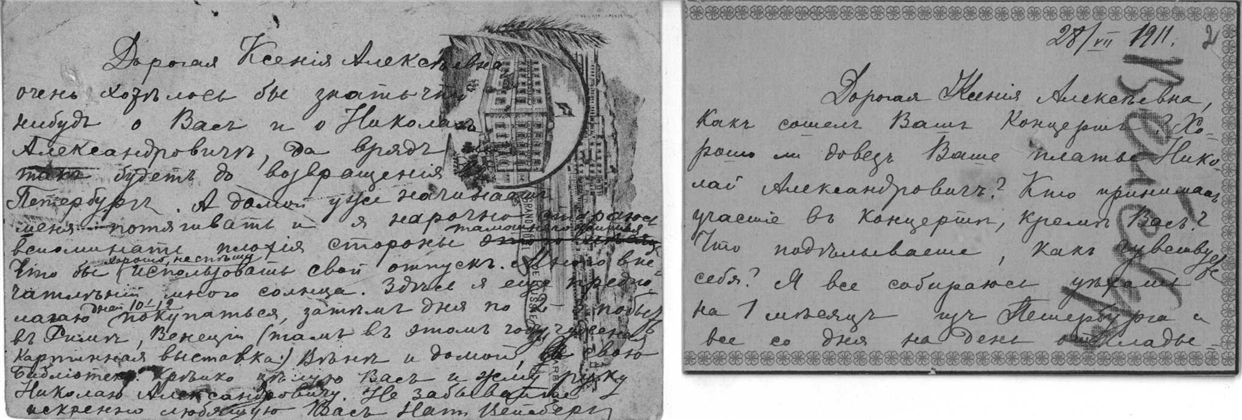 Дорогая Ксенія Алексѣевна
очень хотѣлось бы знать что
нибудь о Васъ и о Николаѣ
Александровичѣ, да врядъ
такъ будетъ до возвращенія
Петербургъ. А домой уже начинаетъ
меня потягивать и я нарочно стараюсь
вспоминать плохія стороны
Что бы хорошо, не спѣша использовать свой отпускъ. Много впе
чатлѣній много солнца. Здѣсь я еще предпо
лагаю дней 10-12 покупаться, затѣмъ дня по побыть
въ Римѣ, Венеціи (тамъ въ этомъ году чудесная
картинная выставка) Вѣнѣ и домой, въ свою
библіотеку. Крѣпко цѣлую Васъ и жму руку
Николаю Александровичу. Не забывайте
искренно любящую Васъ Нат.
GRAND
28/VII 1911. 2
Дорогая Ксенія Алексѣевна,
Какъ сошелъ Вашъ концертъ? Хо-
рошо ли довезъ Ваше платье Нико
лай Александровичъ? Кто принималъ
участіе въ концертѣ, кромѣ Васъ?
Что подѣлываете, какъ чувствуете
себя? Я все собираюсь уѣхать
на 1 мѣсяцъ изъ Петербурга и
все со дня на день откладываю